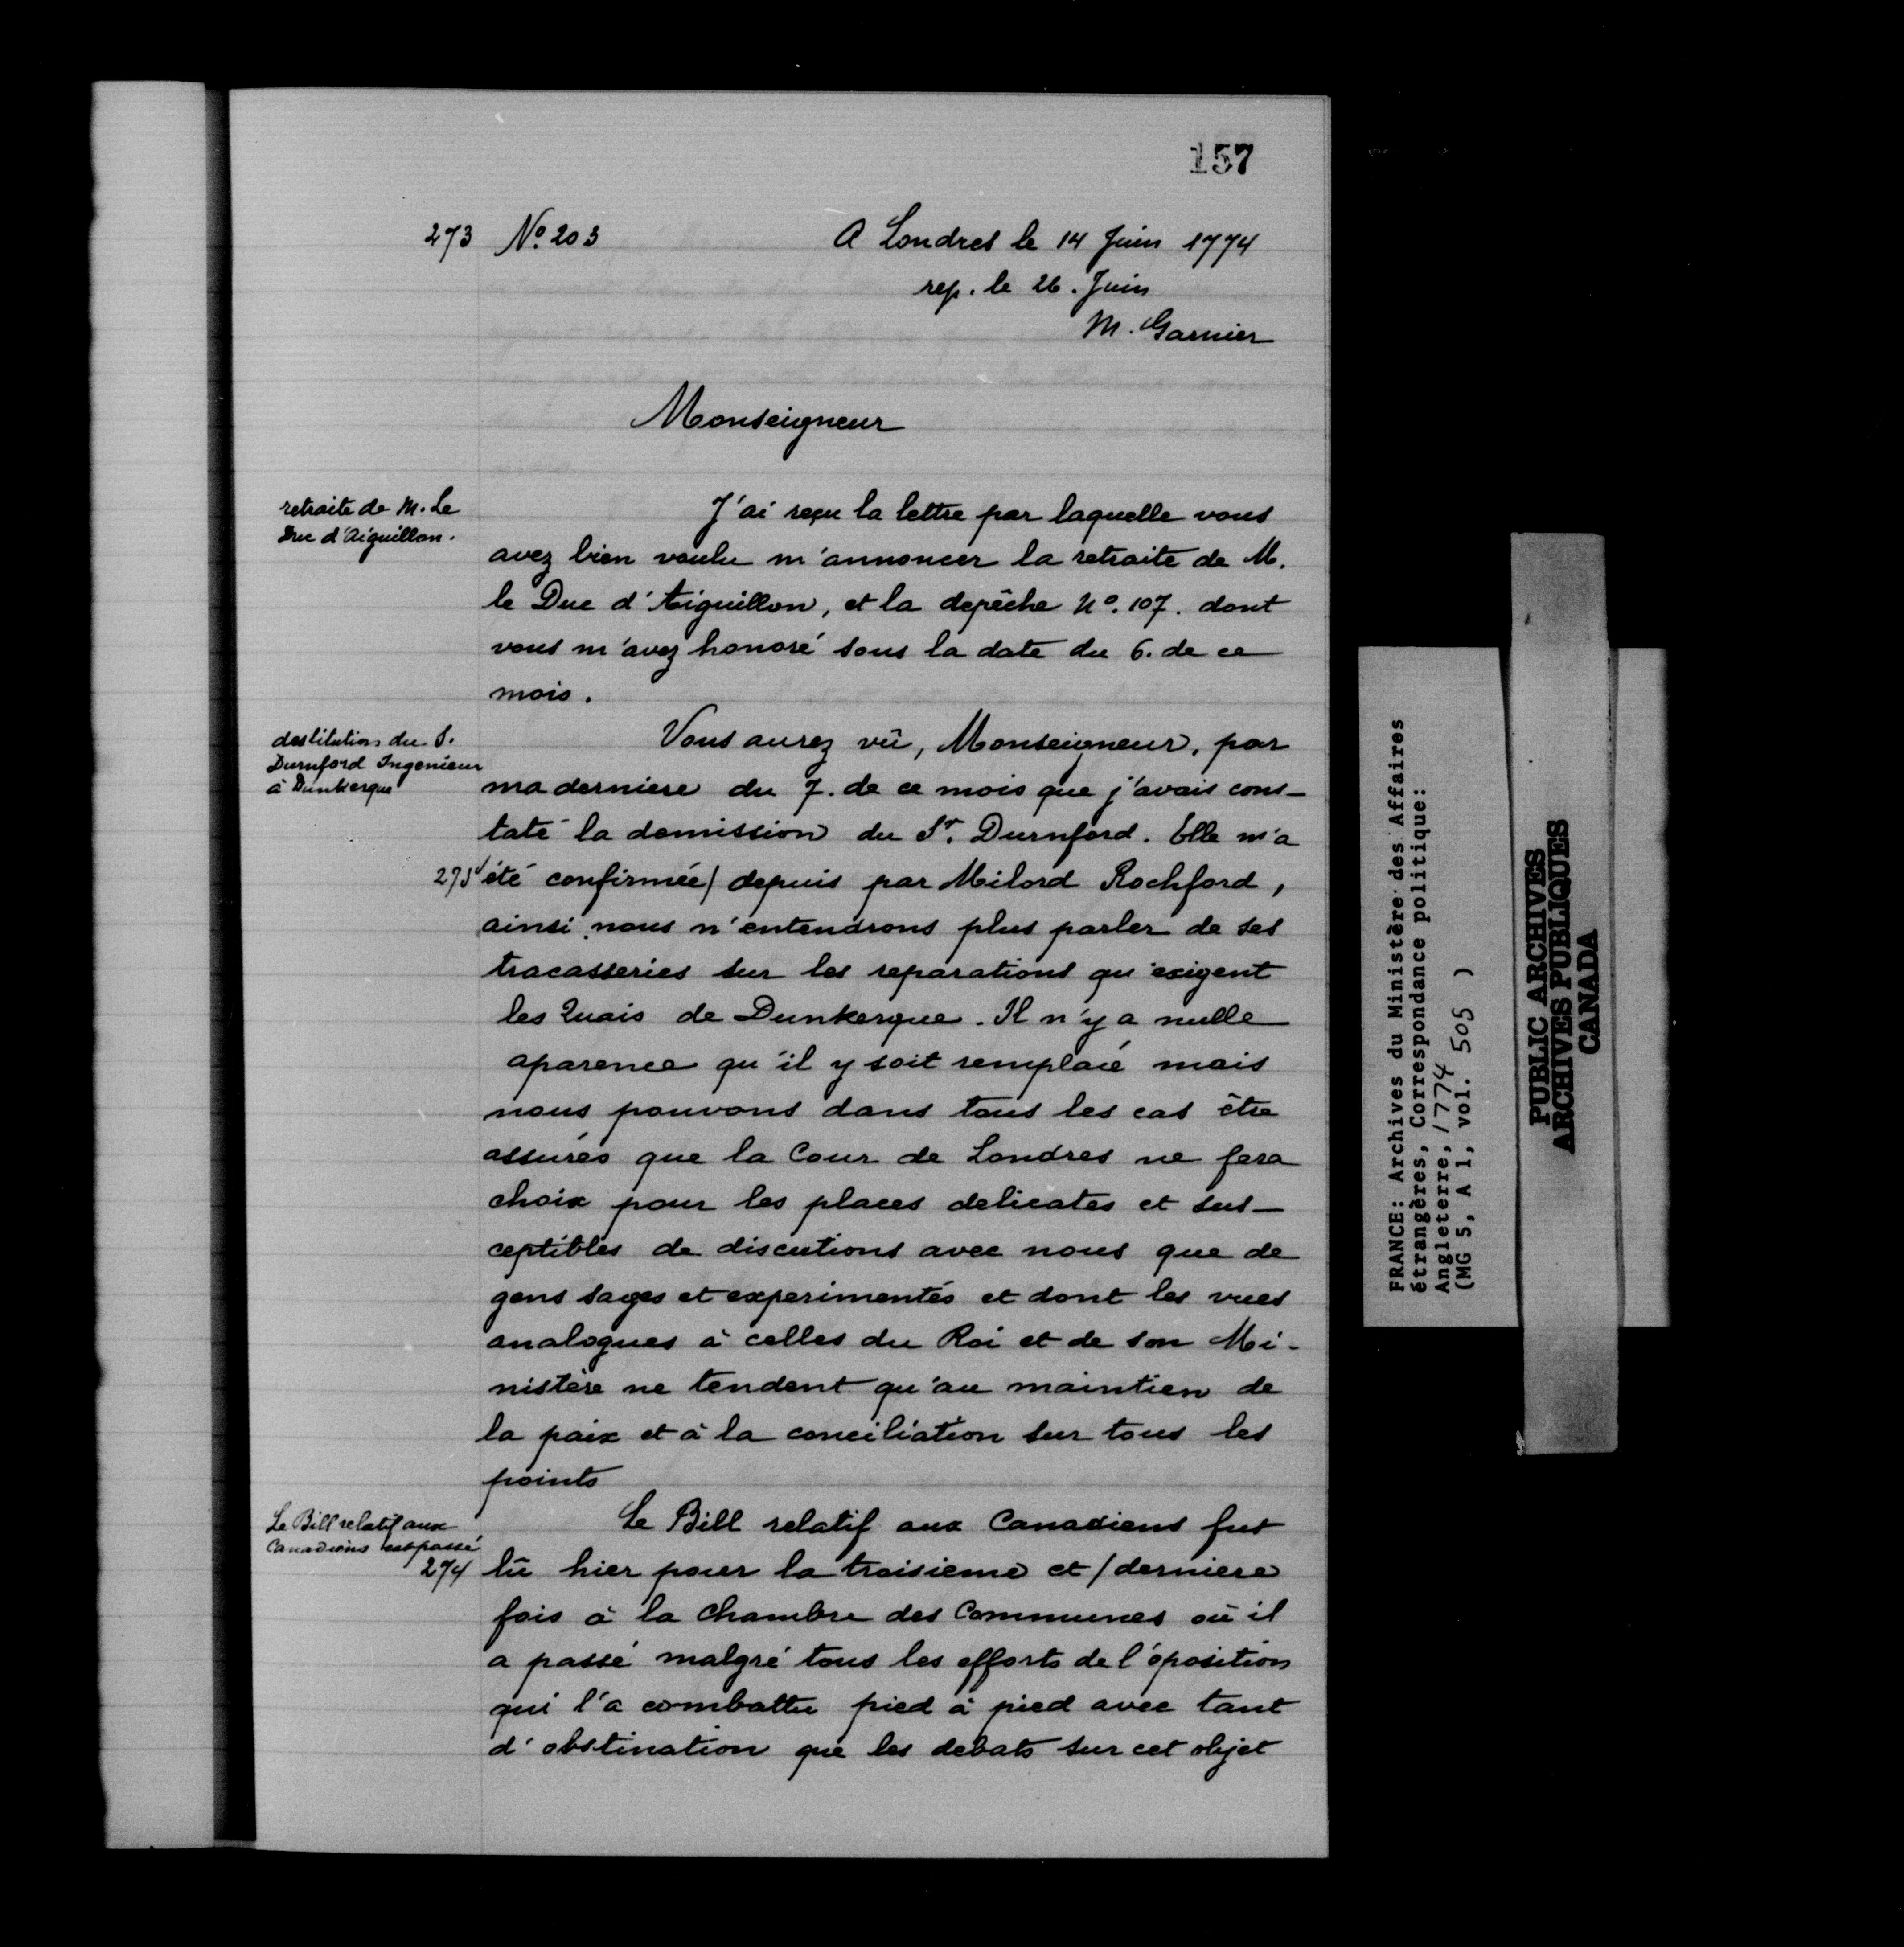 157
273 Nº. 203 A Londres le 14 Juin 1774
rep. le 26. Juin
M. Garnier
Monseigneur
retraite de M. Le
Duc d'Aiguillon.
J'ai reçu la lettre par laquelle vous
avez bien voulu m'annoncer la retraite de M.
le Duc d'Aiguillon, et la depêche Nº. 107. dont
vous m'avez honoré sous la date du 6. de ce
mois.
destitution du S.
Durnford Ingenieur
à Dunkerque
Vous aurez vû, Monseigneur, par
ma derniere du 7. de ce mois que j'avais cons-
taté la demission du Sr. Durnford. Elle m'a
273v été confirmée/ depuis par Milord Rochford,
ainsi nous n'entendrons plus parler de ses
tracasseries sur les reparations qu'exigent
les Quais de Dunkerque. Il n'y a nulle
aparence qu'il y soit remplacé mais
nous pouvons dans tous les cas être
assurés que la Cour de Londres ne fera
choix pour les places delicates et sus-
ceptibles de discutions avec nous que de
gens sages et experimentés et dont les vues
analogues à celles du Roi et de son Mi-
nistère ne tendent qu'au maintien de
la paix et à la conciliation sur tous les
points
Le Bill relatif aux
Canadiens est passé
Le Bill relatif aux Canadiens fut
274 lû hier pour la troisieme et / derniere
fois à la Chambre des Communes où il
a passé malgré tous les efforts de l'oposition
qui l'a combattu pied à pied avec tant
d'obstination que les debats sur cet objet
FRANCE: Archives du Ministère des Affaires
étrangères, Correspondance politique:
Angleterre, 1774
(MG 5, A 1, vol. 505 )
PUBLIC ARCHIVES
ARCHIVES PUBLIQUES
CANADA